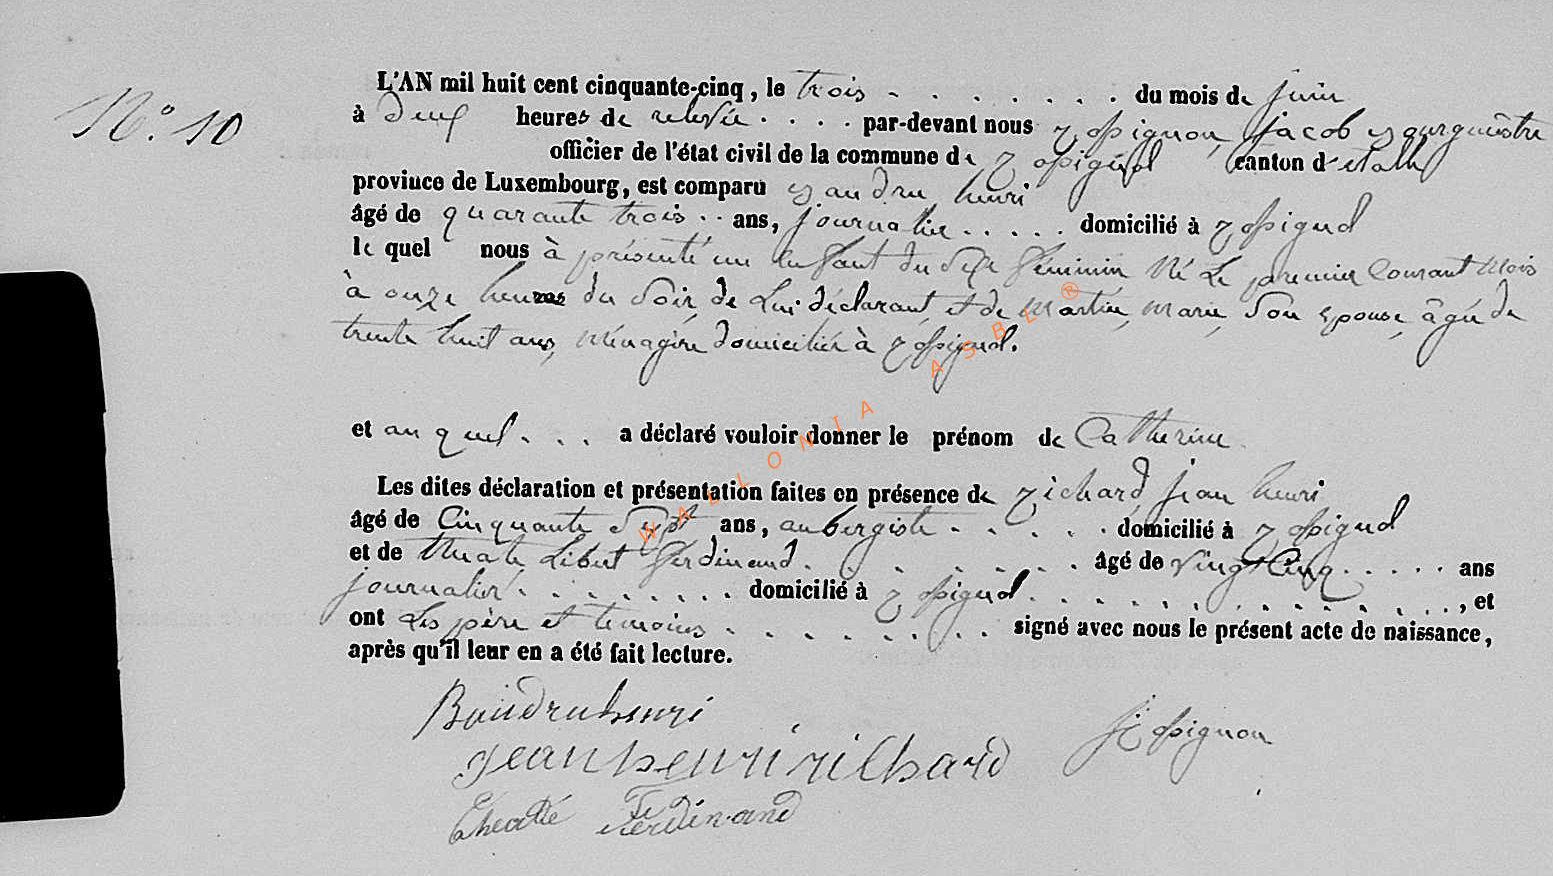 N.° 10
L'AN mil huit cent cinquante-cinq, le trois du mois de juin
à deux heures de relevée par-devant nous rossignon, jacob bourguméstre
officier de l'état civil de la commune de rossignol canton d'etalle
province de Luxembourg, est comparu baudru henri
âgé de quarante trois ans, journalier domicilié à rossignol
le quel nous à présenté un enfant du sexe féminin Né Le premier Courant Mois
à onze heures du Soir, de Lui déclarant, et de Martin, marie, Son épouse, âgée de
trente huit ans, Ménagère domiciliée à rossignol.
et auquel a déclaré vouloir donner le prénom de Catherine
Les dites déclaration et présentation faites en présence de richard jean henri
âgé de Cinquante Sept ans, aubergiste domicilié à rossignol
et de theate Libert ferdinand. âgé de Vingt Cinq ans
journalier domicilié à rossignol, et
ont Les père et temoins signé avec nous le présent acte de naissance,
après qu'il leur en a été fait lecture.
Baudru henri
J rossignon
jean henri richard
theatte Ferdinand
WALLONIA ASBL ®